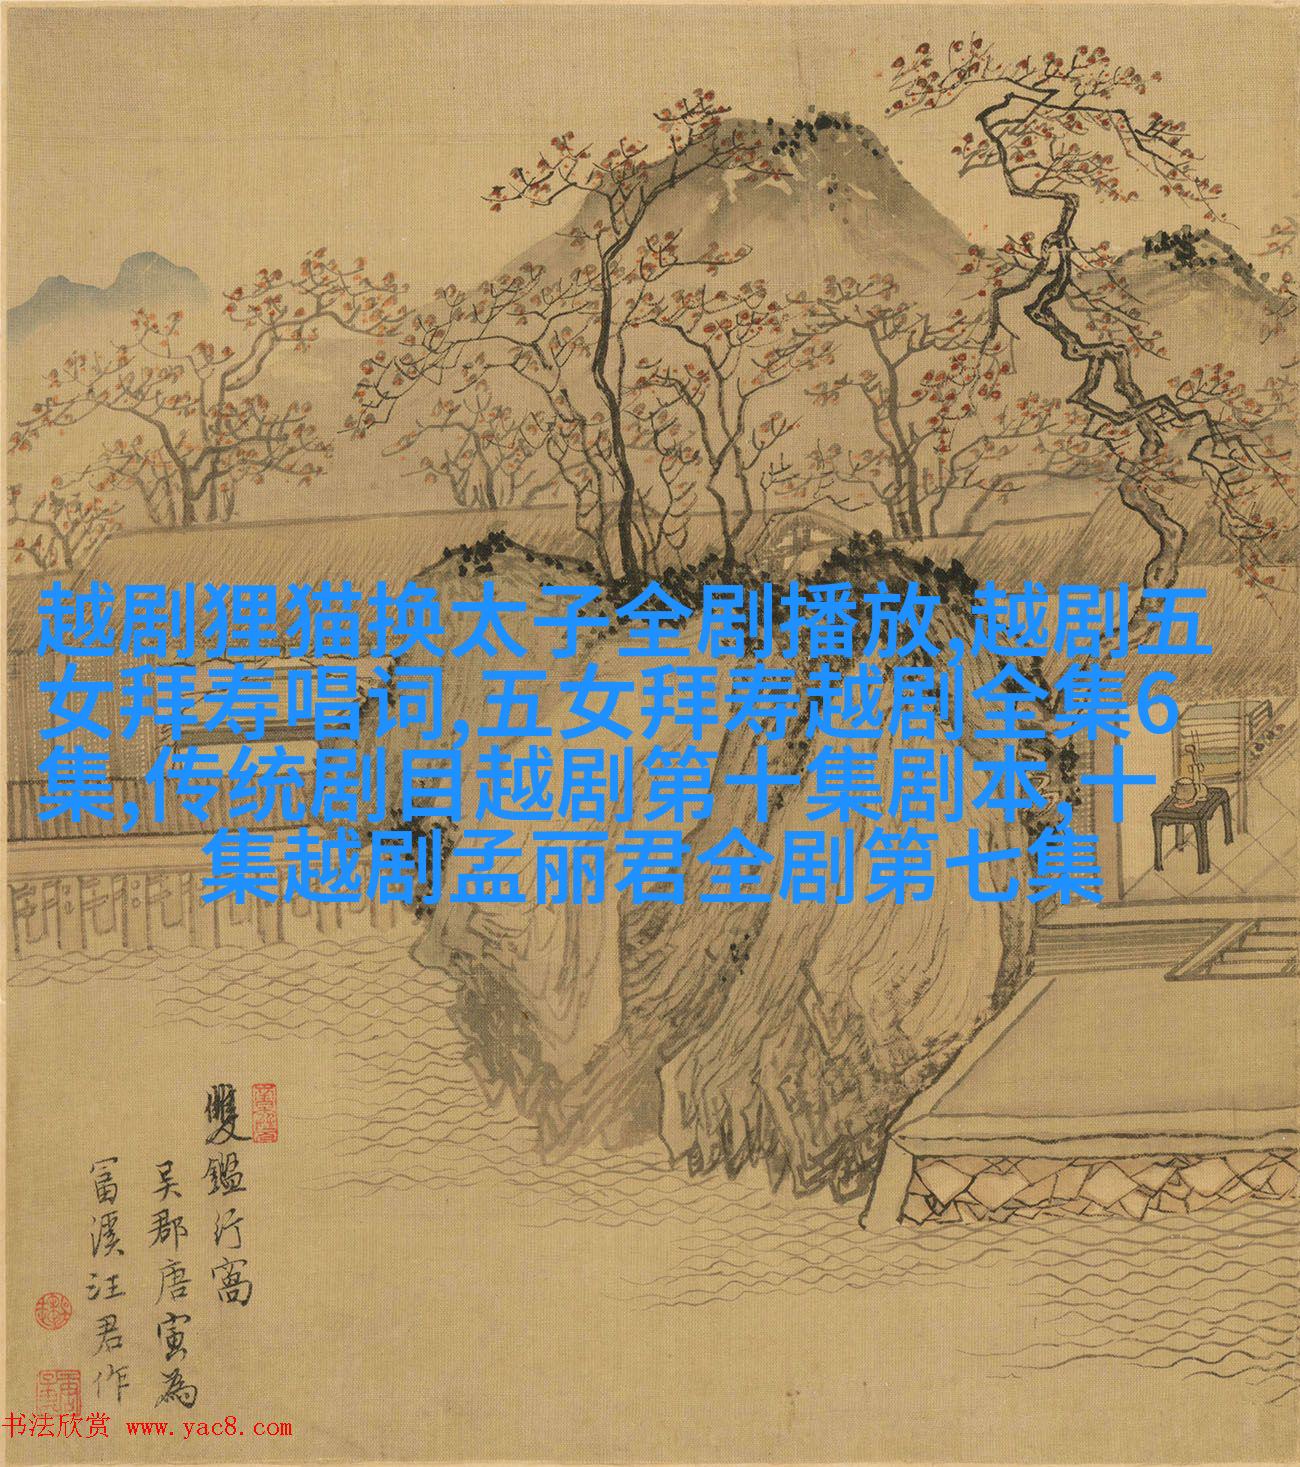 越剧狸猫换太子全剧播放,越剧五
女拜寿唱词,五女拜寿越剧全集6
集,传统剧目越剧第十集剧本,十
集越剧孟丽君全剧第七集
雙鑑行窩
吴郡唐寅為
富溪汪君作
书法欣赏 www.yac8.com